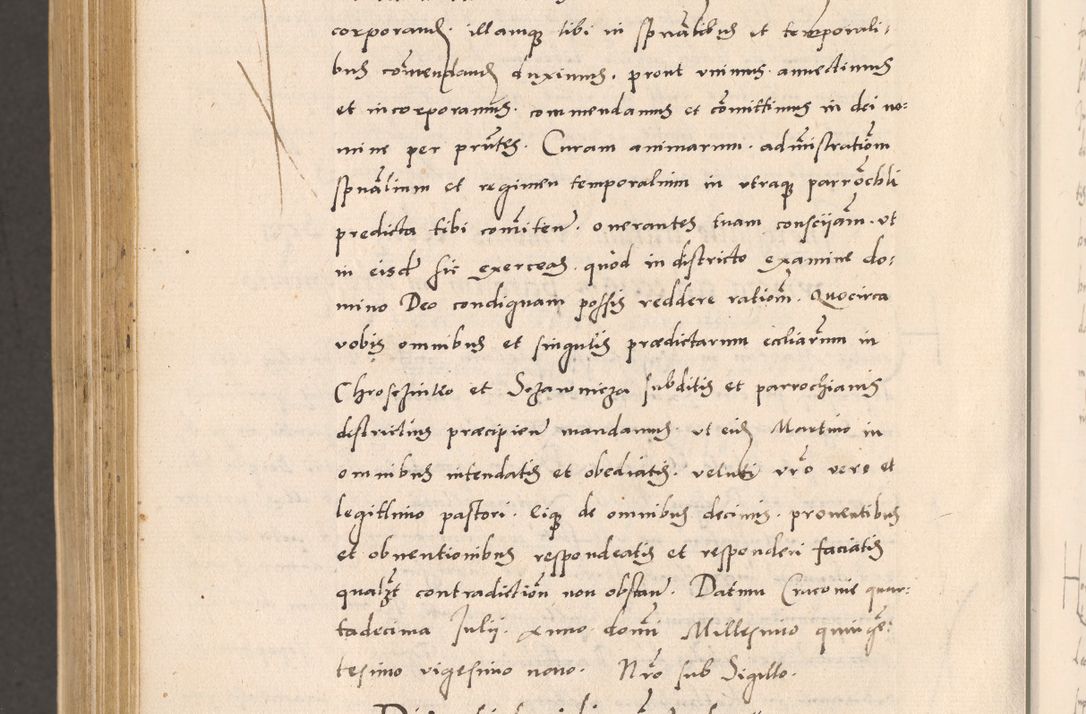 corporand. illamq3 tibi in spūalibus et temporali,
bus cōmendand duximus. prout unimus. annectimus
et incorporamus. commendamus et cōmittimus in dei no:
mine per pn̄tes. Curam animarum. admi̅stratiōm
spūalium et regimen temporalium in utraq3 parrochli
predicta tibi com̄itten. onerantes tuam consciiam. ut
in eisd sic exerceas. quod in districto examine do:
mino Deo condignam possis reddere ratiōm. Quocirca
vobis omnibus et singulis prædictarum eccliarum in
et subditis et parrochianis
districtius præcipien mandamus. ut eid Martino in
omnibus intendatis et obediatis. veluti vr̄o vero et
legittimo pastori. eiq3 de omnibus decimis. proventibus
et obventionibus respondeatis et responderi faciatis
qualzt contradictiōn non obstan. Datum Cracovie quar:
tadecima Julii. Anno domi Millesimo quinge:
tesimo vigesimo nono. Nr̄o sub Sigillo.